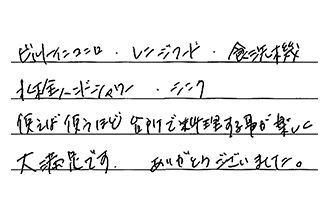 ビルトインコンロ・レンジフード・食洗機
水栓ハンドシャワー・シンク
使えば使うほど台所で料理する事が楽しく
大満足です。ありがとうございました。